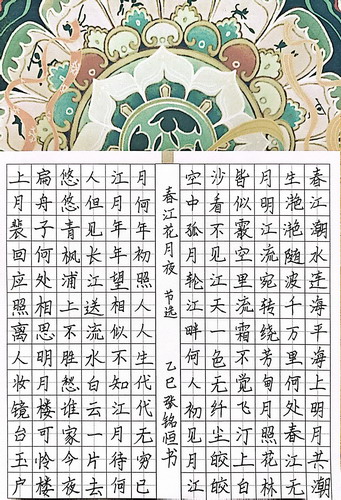 春江潮水连海平海上明月共潮
生滟滟随波千万里何处春江无
月明江流宛转绕芳甸月照花林
皆似霰空里流霜不觉飞汀上白
沙看不见江天一色无纤尘皎皎
空中孤月轮江畔何人初见月江
春江花月夜 节选 乙巳张铭恒书
月何年初照人人生代代无穷已
江月年年望相似不知江月待何
人但见长江送流水白云一片去
悠悠青枫浦上不胜愁谁家今夜
扁舟子何处相思明月楼可怜楼
上月裴回应照离人妆镜台玉户